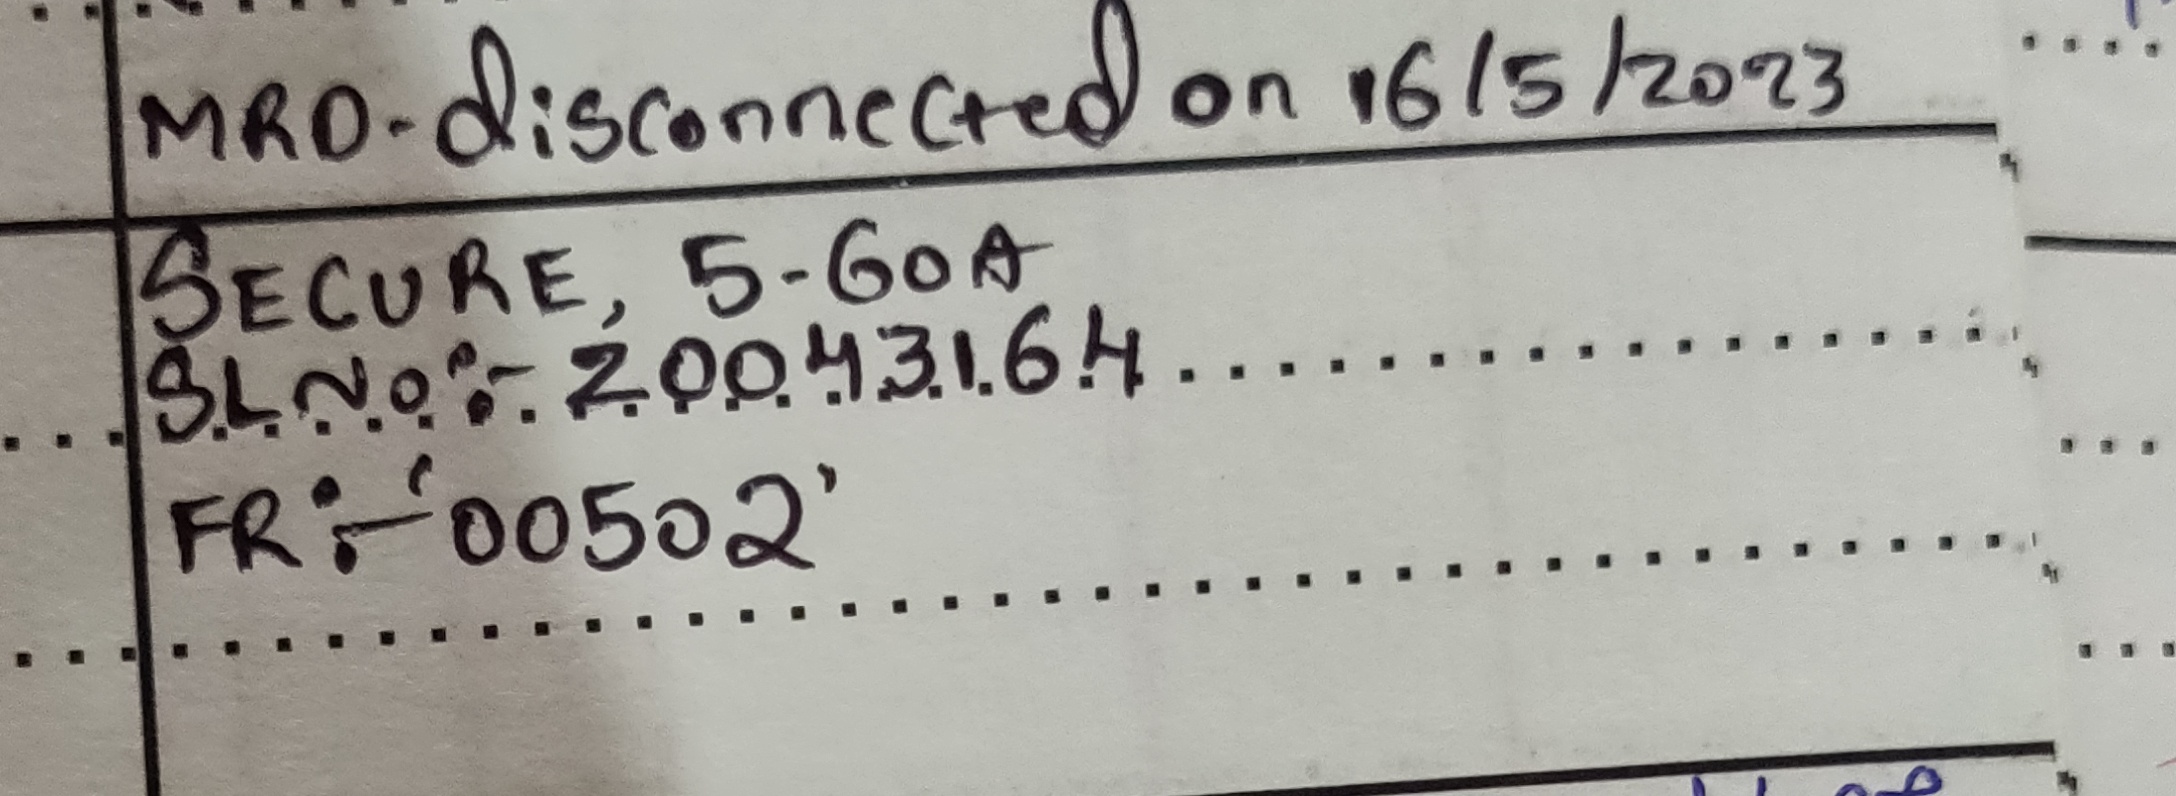 MRD-disconnected on 16/5/2023
SECURE, 5-60A
SL.No:- 20043164
FR:- '00502'